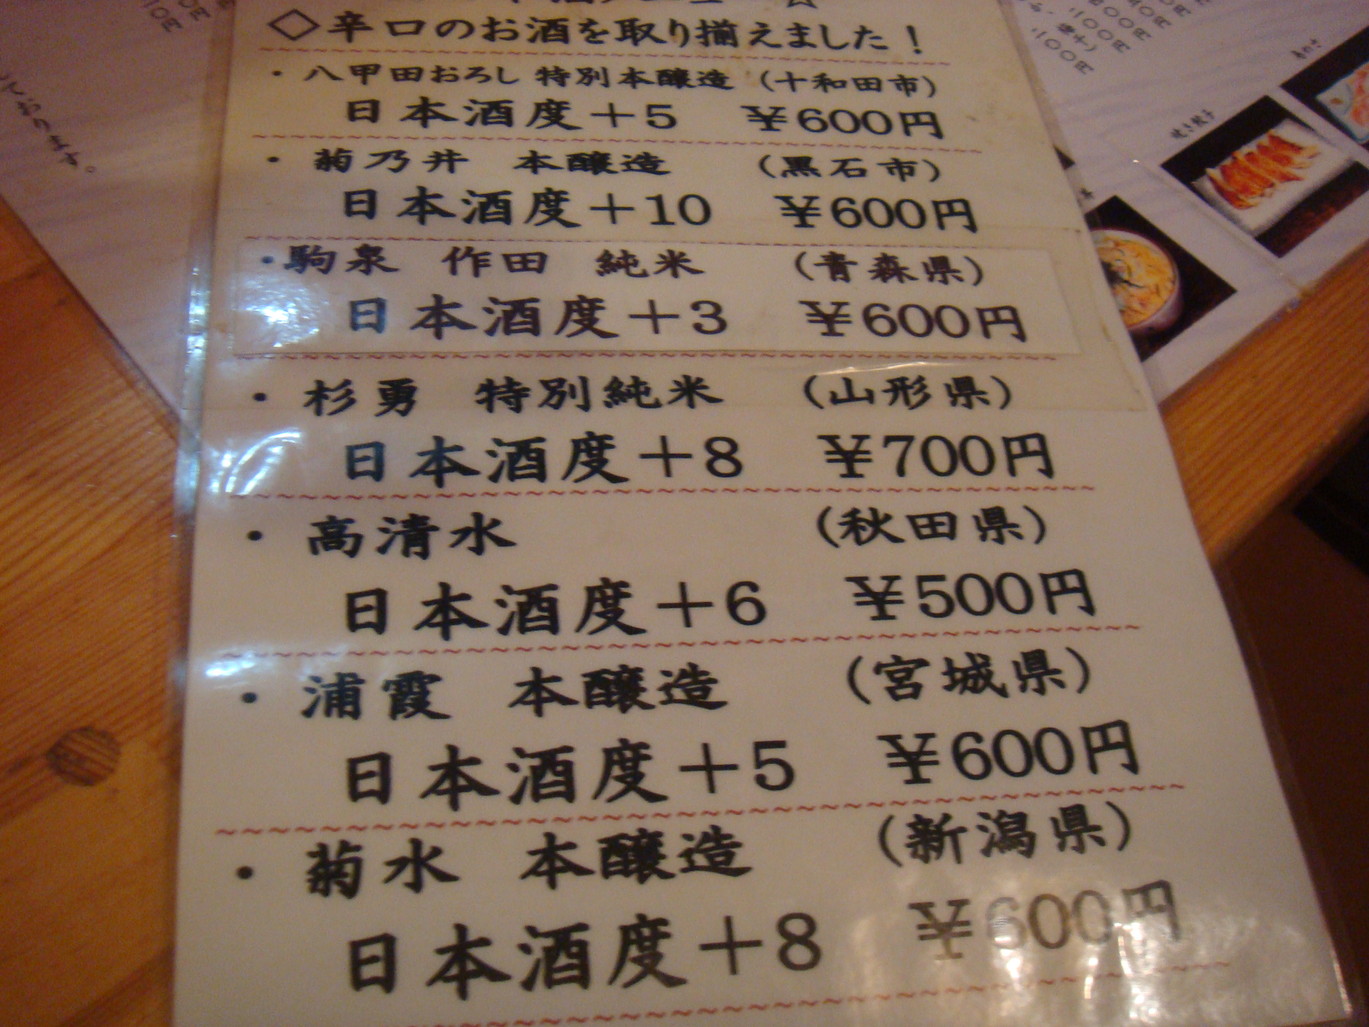 ◇辛口のお酒を取り揃えました！
・八甲田おろし 特別本醸造 (十和田市)
日本酒度＋5 ￥600円
・菊乃井 本醸造 (黒石市)
日本酒度＋10 ￥600円
・駒泉 作田 純米 (青森県)
日本酒度＋3 ￥600円
・杉勇 特別純米 (山形県)
日本酒度＋8 ￥700円
・高清水 (秋田県)
日本酒度＋6 ￥500円
・浦霞 本醸造 (宮城県)
日本酒度＋5 ￥600円
・菊水 本醸造 (新潟県)
日本酒度＋8 ￥600円
ております。
焼き餃子